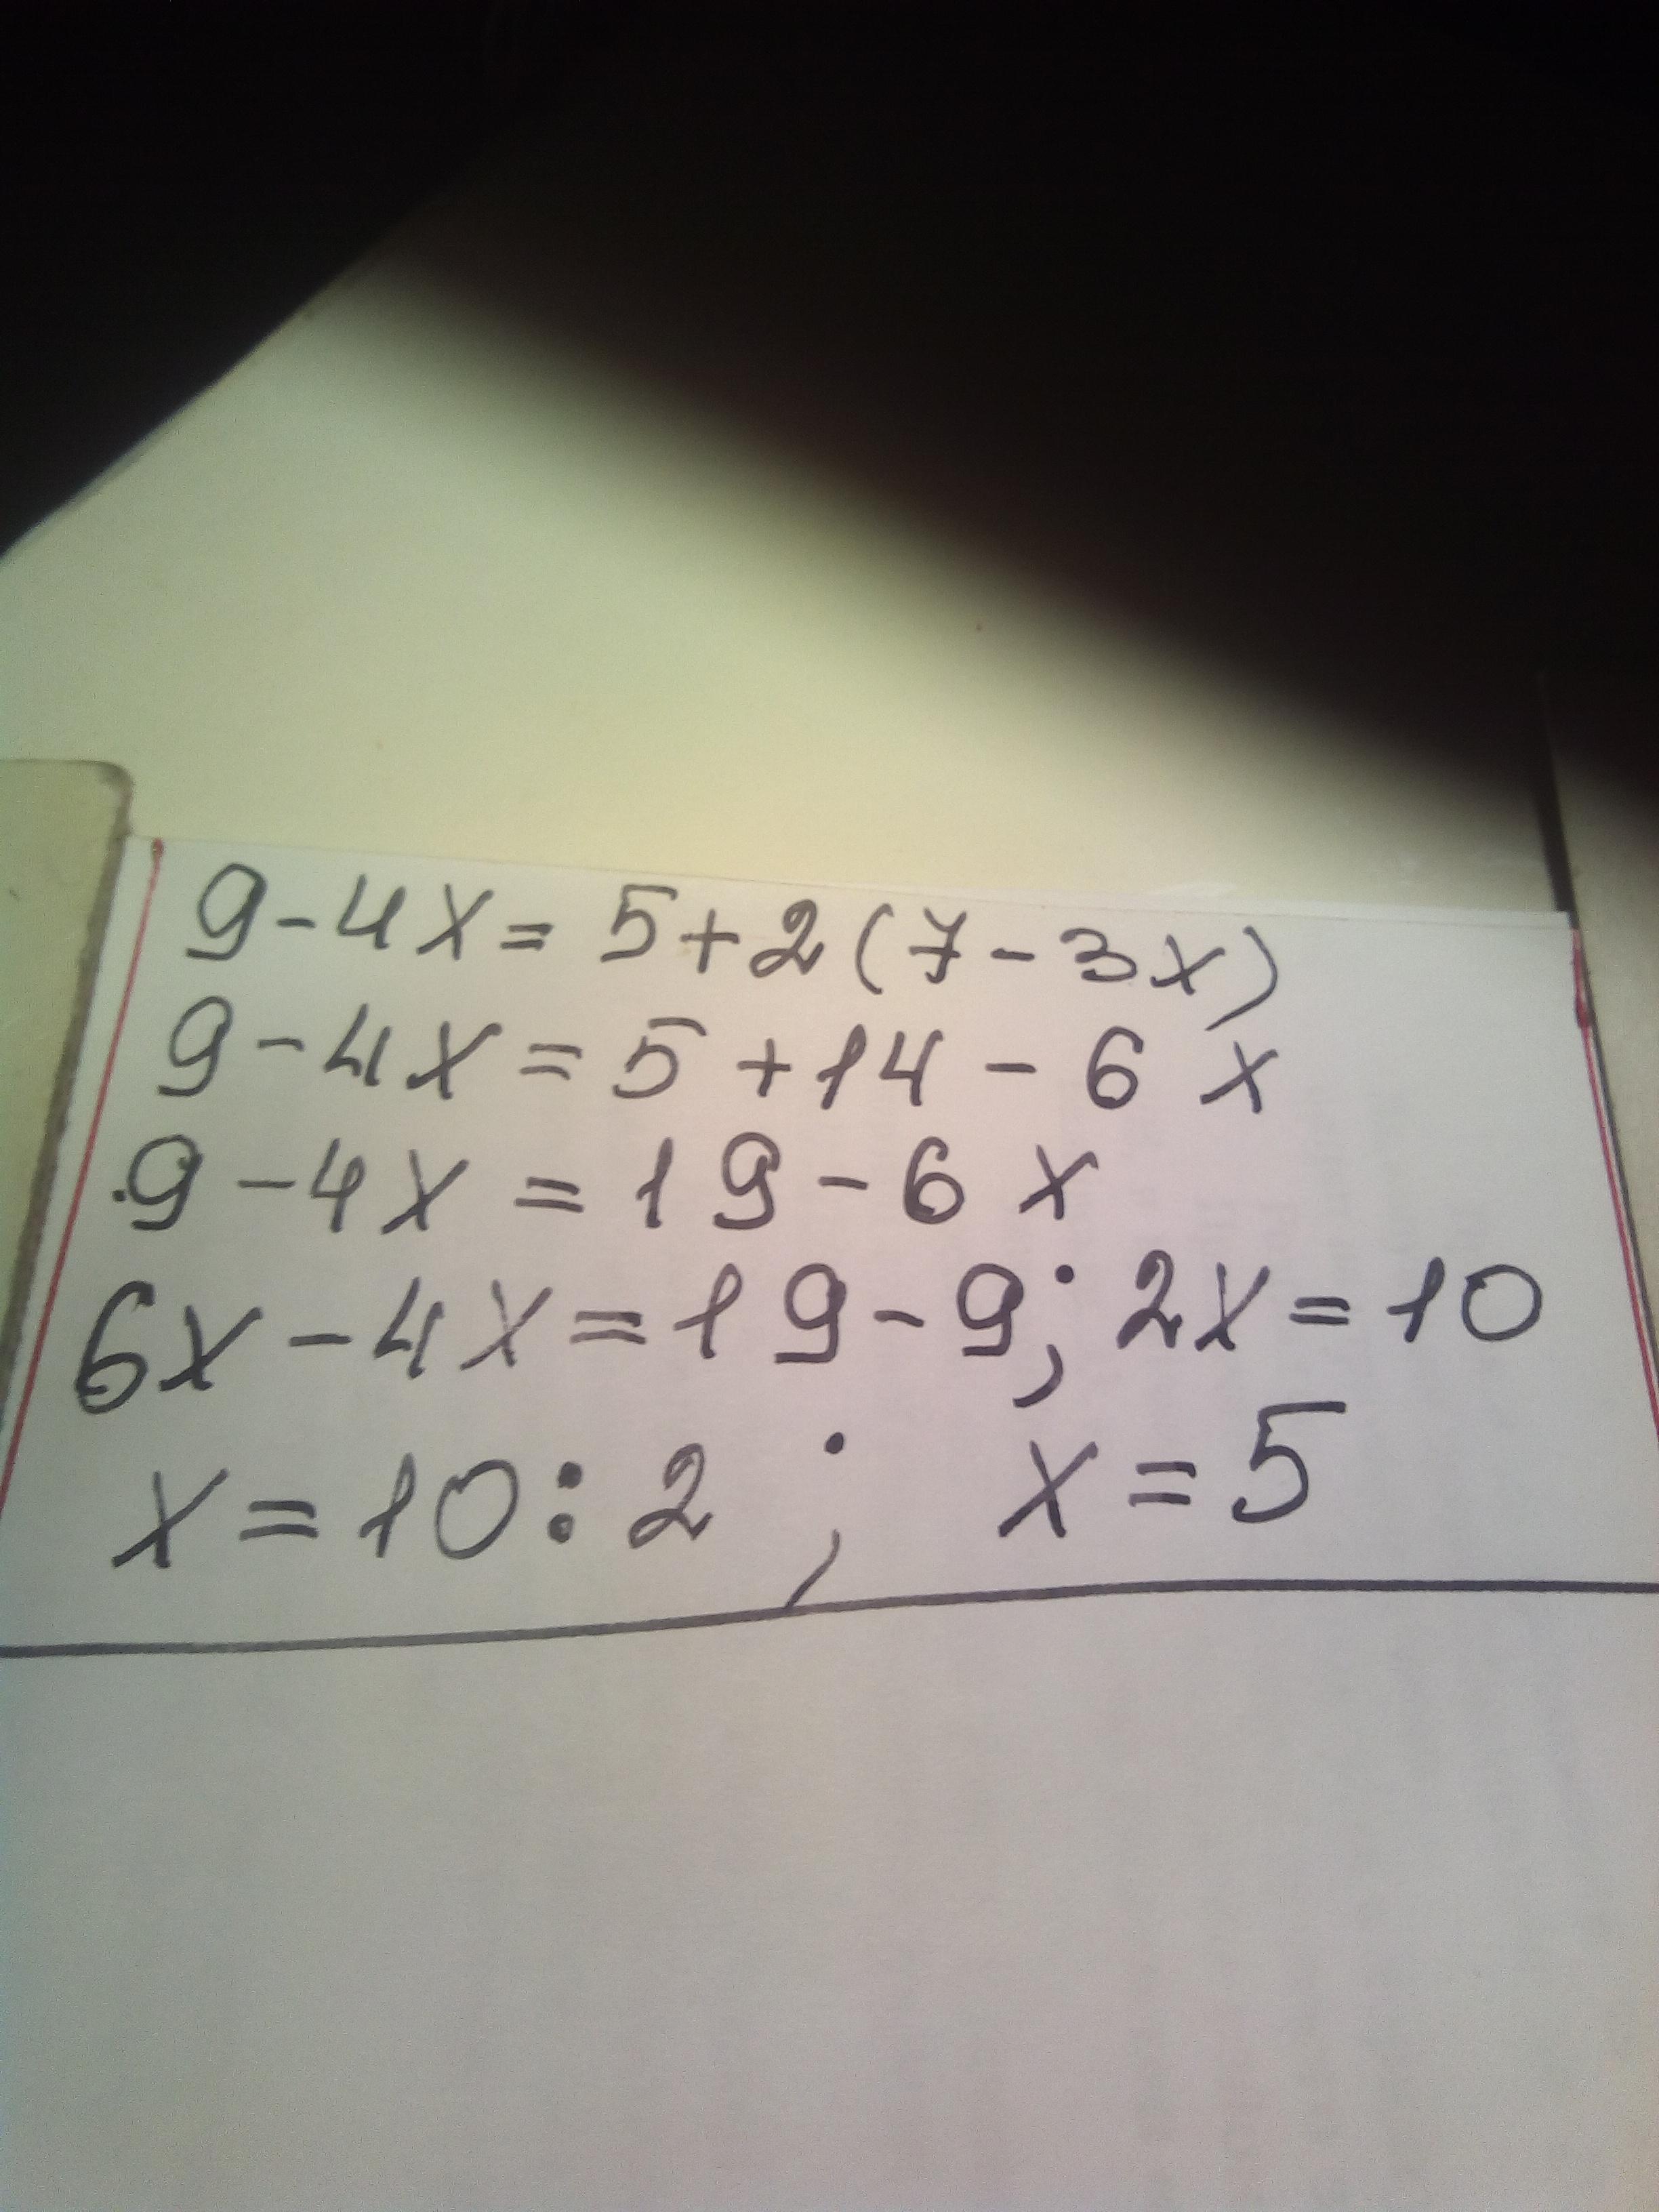 9-4x=5+2(7-3x)
9-4x=5+14-6x
9-4x=19-6x
6x-4x=19-9; 2x=10
x=10:2 ; x=5